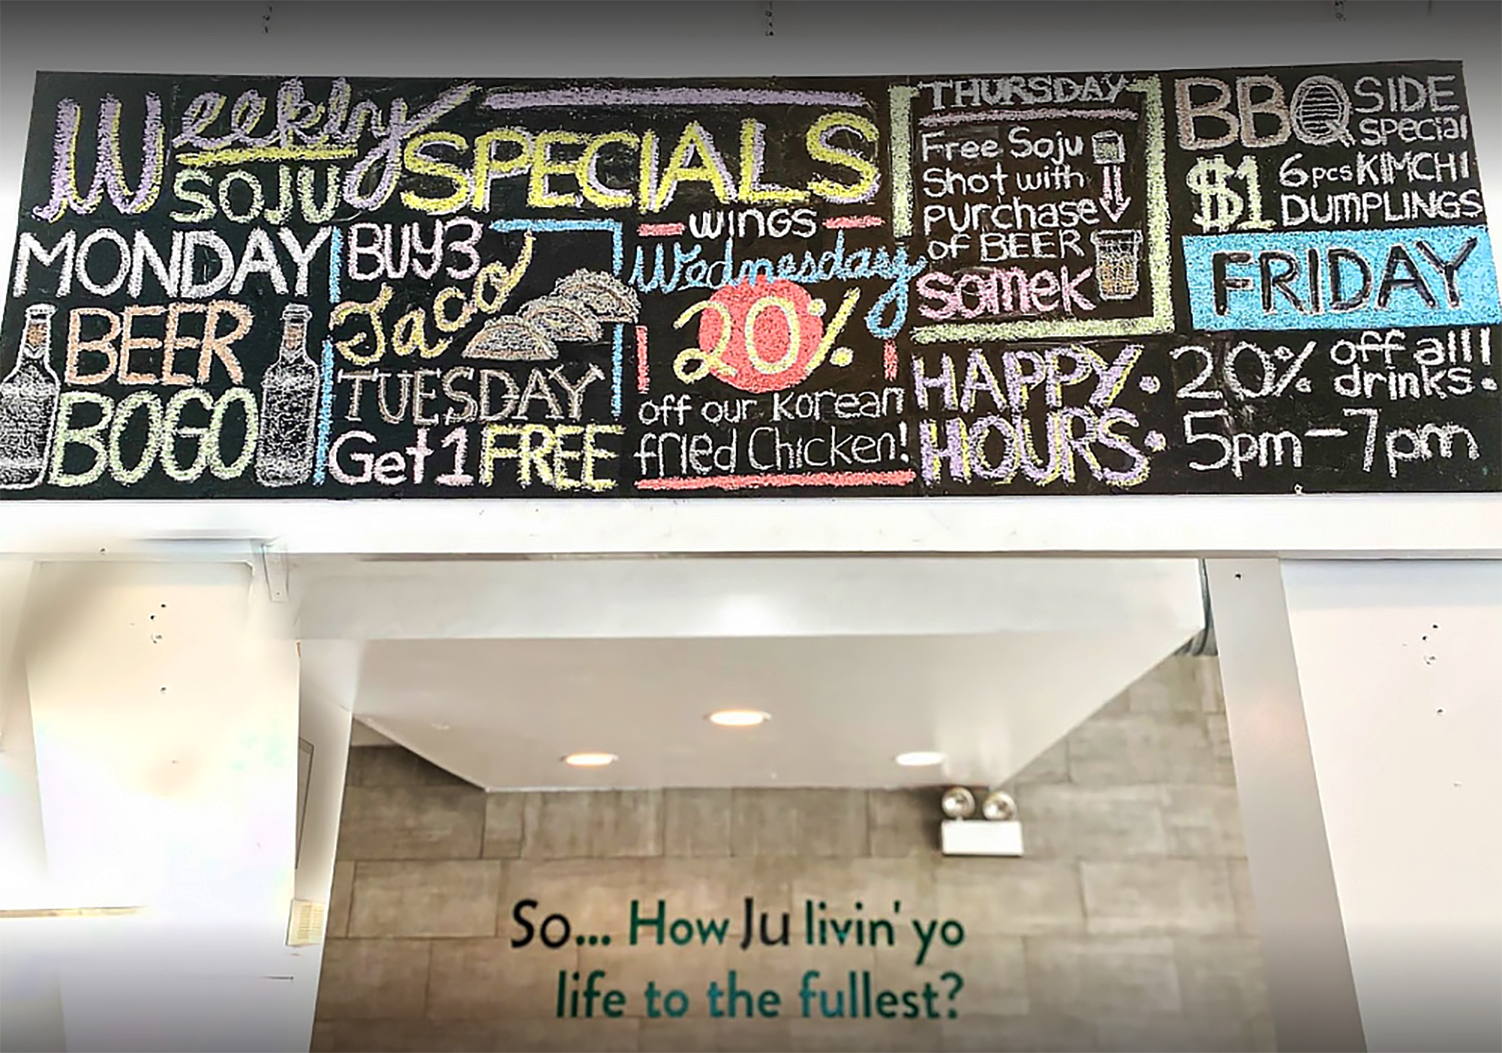 Weekly SPECIALS
SOJU
MONDAY
BEER
BOGO
BUY3
Taco
TUESDAY
Get 1 FREE
WINGS
Wednesday
20%
off our Korean
fried Chicken!
THURSDAY
Free Soju
Shot with
purchase
of BEER
somek
BBQ SIDE
special
$1 6pcs KIMCHI
DUMPLINGS
FRIDAY
HAPPY
HOURS:
20% off all!
drinks!
5pm-7pm
So... How Ju livin' yo
life to the fullest?